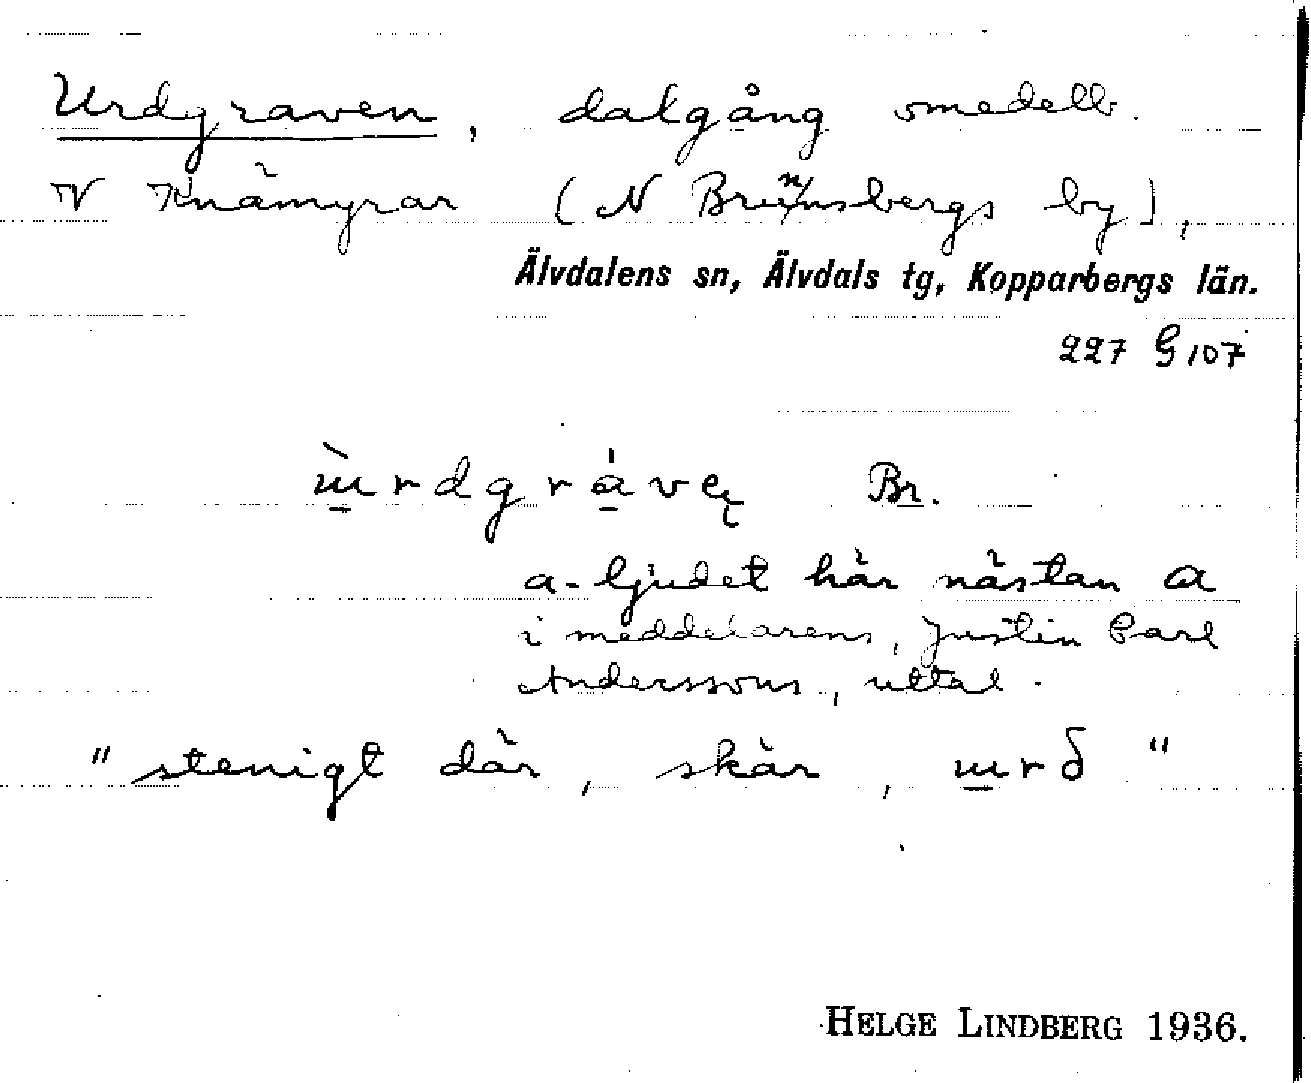 Urdgraven, dalgång omedelb.
V Knämyrar (N Brunnsbergs by),
Älvdalens sn, Älvdals tg, Kopparbergs län.
227 G 107
ɯ̀rdgràveɳ Br.
a-ljudet här nästan ɑ
i meddelarens, Justin Carl
Anderssons, uttal.
"stenigt där, skär, ɯrð"
HELGE LINDBERG 1936.